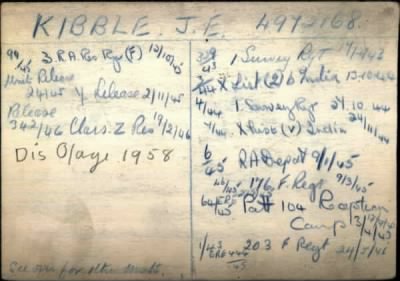 KIBBLE. J.E. 4972168.
99/45 3. R.A. Res Rgt (F) 12/10/45
Unit Release
24/45 Y Release 2/11/45
Release
342/46 Class. Z Res 19/2/46
Dis O/age 1958
See over for other units.
1 Survey Rgt
X List (2) 6 India 13.10.44
4/44 1 Survey Rgt 27.10.44
X List (v) India 24/11/44
6/45 RA Depot 9/1/45
46/45 176 F. Regt 9/3/45
Patt 104 Reception
Camp
1/43 203 F Regt 24/5/46